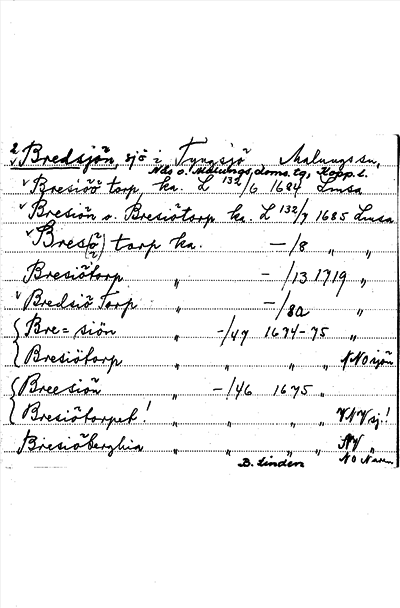 2 Bredsjön, sjö i Tyngsjö Malungs sn,
Nås o. Malungs doms. tg, Kopp. l.
v Bresiöö torp ka. L 132/6 1684 Lmsa
v Bresiön o. Bresiötorp ka. L 132/7 1685 Lmsa
v Bresö(i) torp ka. -/8 " "
Bresiötorp " -/13 1719 "
v Bredsiö Torp " -/82 "
Bre= siön " -/47 1674-75 "
Bresiötorp " " " " NNO sjön
Breesiön " -/46 1675 "
Bresiötorpet! " " " " VNV sj.!
Bresiöberghia " " " " NV "
B. Lindén NO Naren